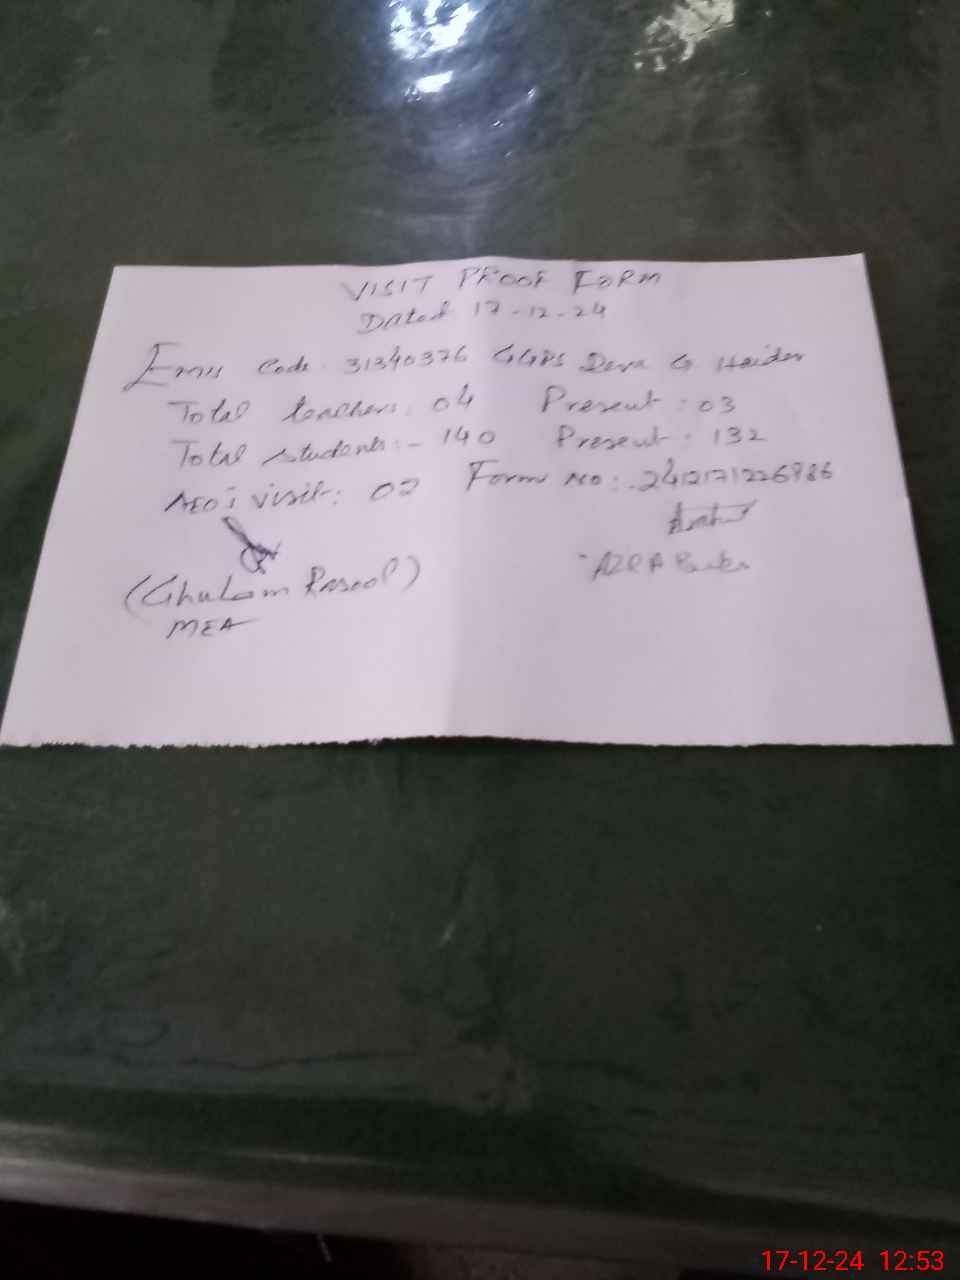 VISIT PROOF FORM
Dated 17-12-24
Emis Code: 31340376 GGPS Dera G Haider
Total teachers: 04 Present: 03
Total students:- 140 Present: 132
AEO's visit: 02 Form No:-
(Ghulam Rasool)
MEA
AZRA
17-12-24 12:53